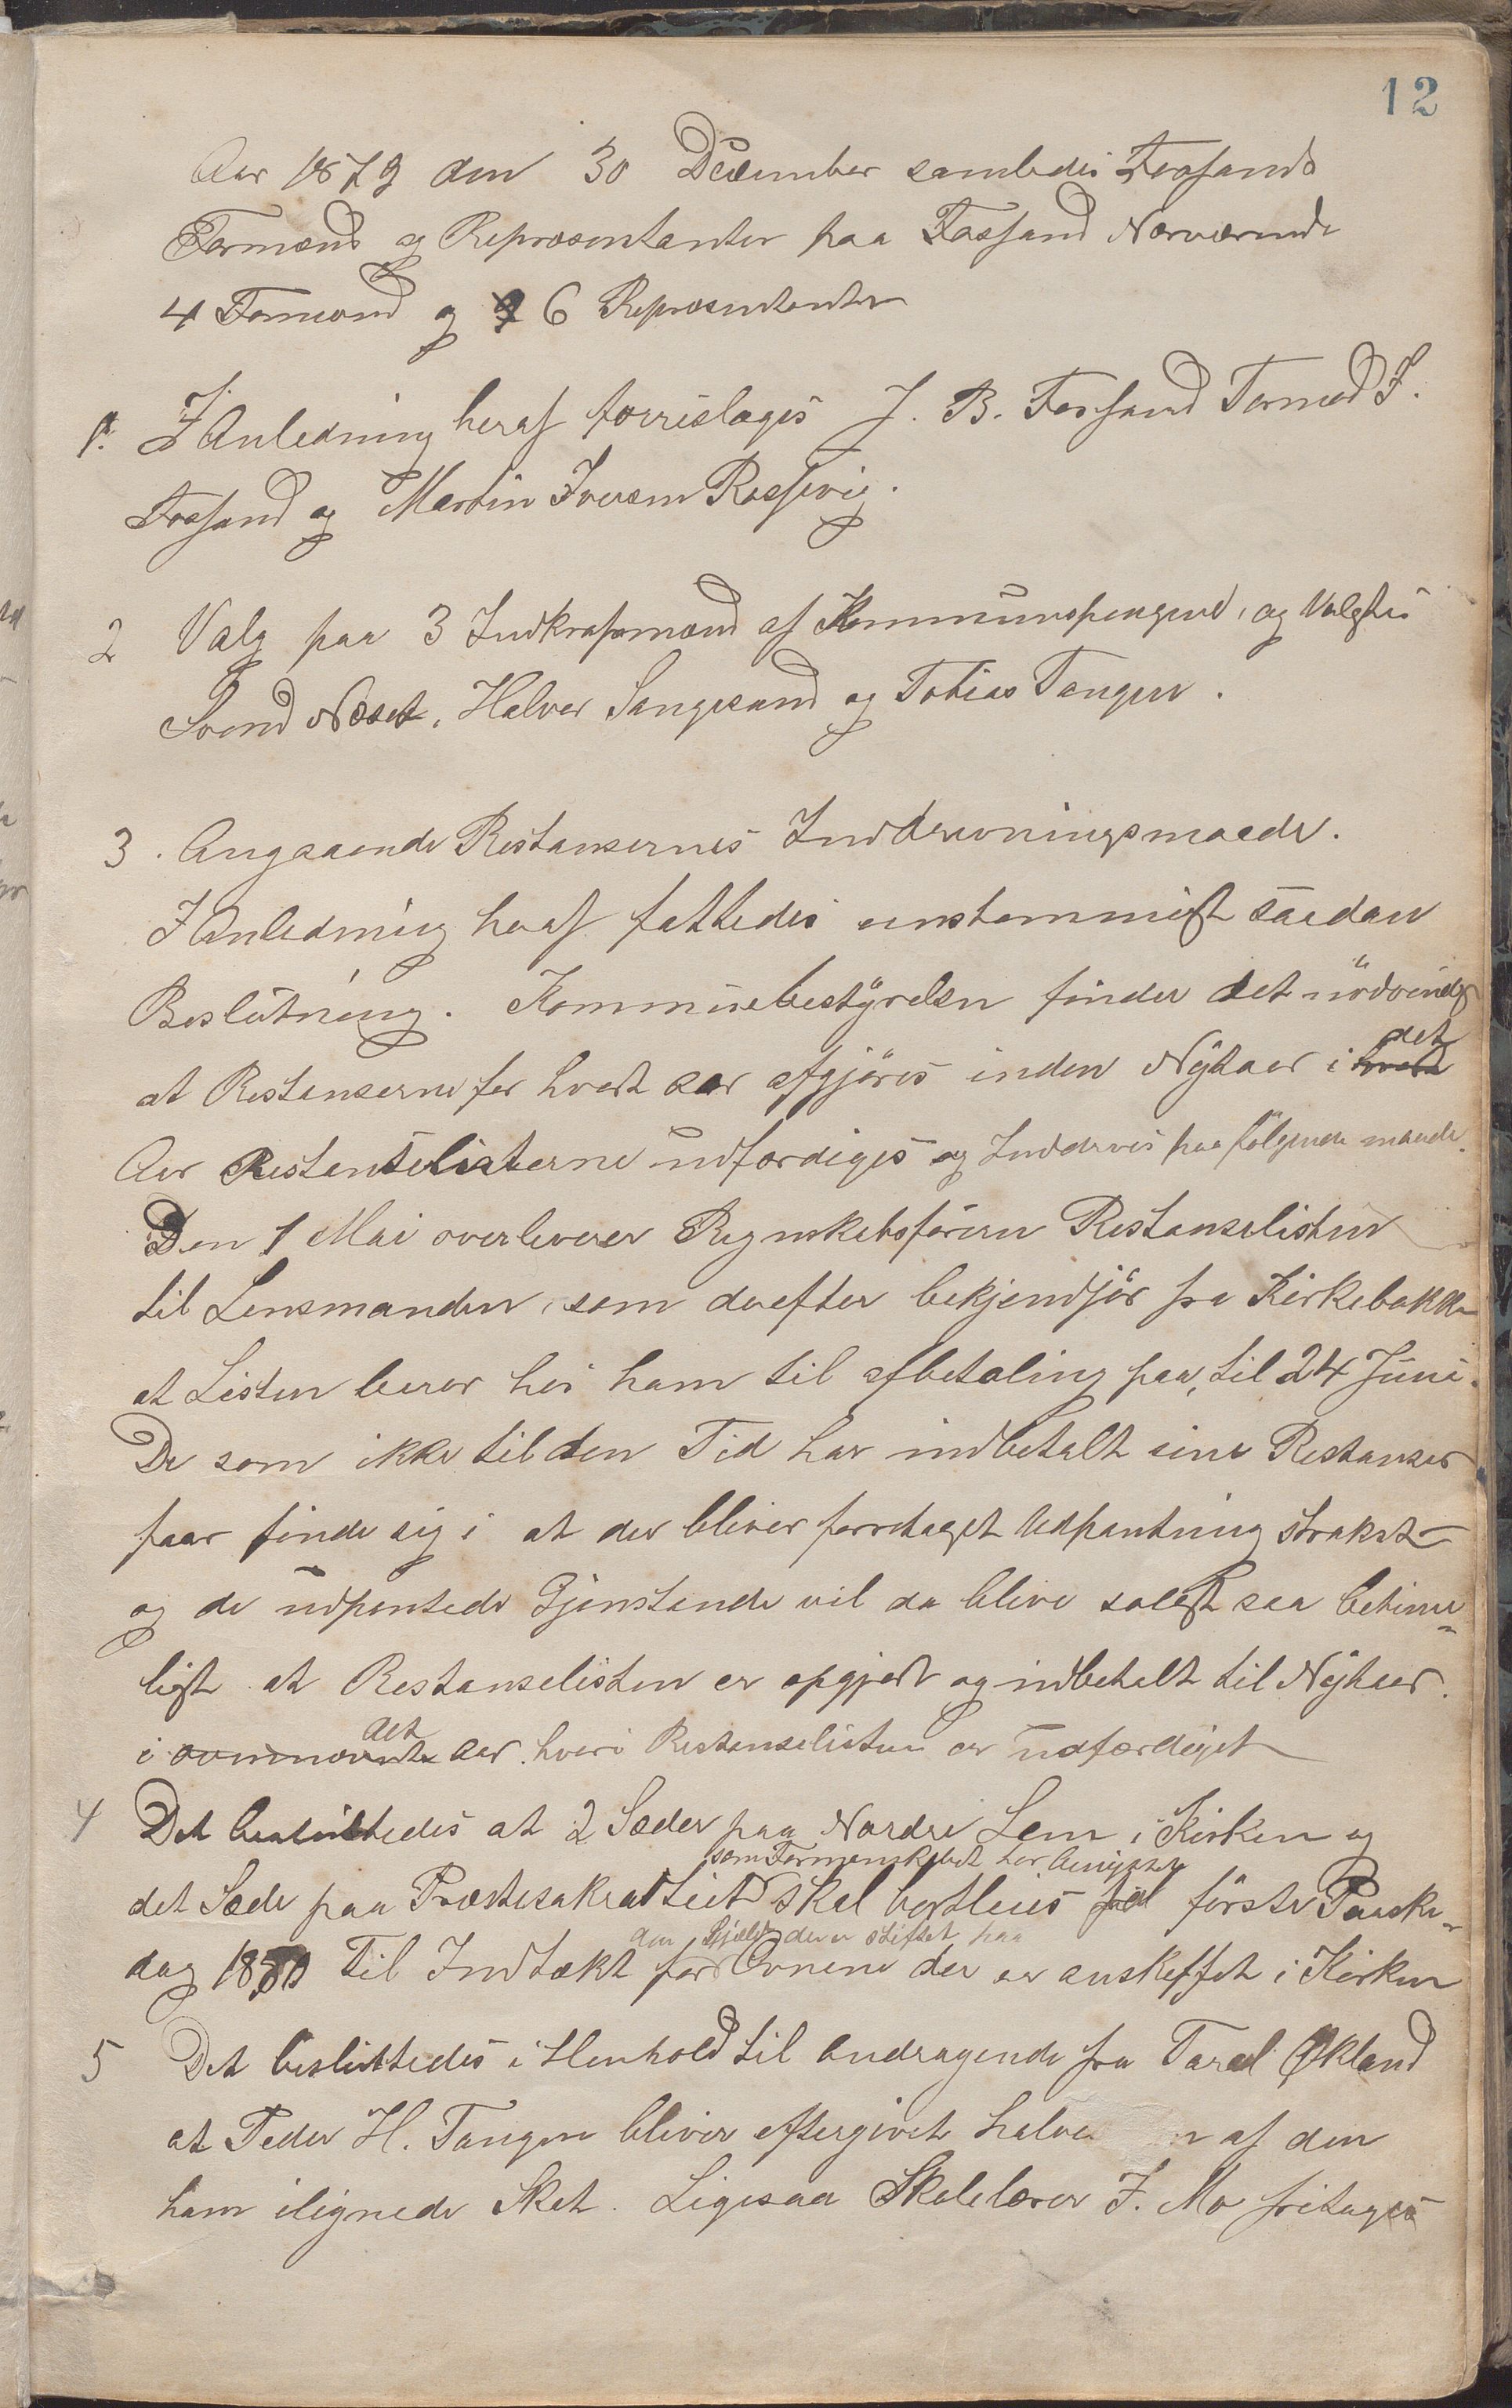 12
Aar 1879 den 30 December samledes Fossands
Formænd og Repræsentanter paa Fossand Nærværende
4 Formænd og 6 Repræsentanter
1. I Anledning heraf foreslages J. B. Fossand Tormod F.
Fossand og Martin Iversen Rossevig.
2 Valg paa 3 Indkrafsmænd af Kommunepengene, og Valgtes
Svend Næset, Halvor Sangesand og Tobias Tangen.
3. Angaaende Restansernes Inddrevningsmaade.
I Anledning heraf fattedes enstemmigt saadan
Beslutning. Kommunebestyrelsen finder det nödvendigt
at Restanserne for hvert aar afgjöres inden Nÿtaar i det
Aar Restanselisterne udfærdiges og Inddrives paa fölgende maade.
Den 1 Mai overleverer Regnskabsföreren Restanselisten
til Lensmanden, som derefter bekjendtjör fra Kirkebakken
at Listen beror hos ham til afbetaling paa, til 24 Juni.
De som ikke til den Tid har indbetalt sine Restanser
faar finde sig i at der bliver foretaget Udpantning strakst
og de udpantede Gjenstande vil da blive solgt saa betime-
ligt at Restanselisten er opgjort og indbetalt til Nÿtaar.
i det Aar hvori Restanselisten er udfærdiget
4 Det besluttedes at 2 Sæder paa Nordre Lem i Kirken og
som Formanskabet har benÿttet
det Sæde paa Præstesakrattiet skal bortleies første Paaske-
den Gjæld der er stiftet paa
dag 1880 Til Indtækt for Ovnene der er anskaffet i Kirken
5 Det besluttedes i Henhold til Andragende fra Tarald Økland
at Peder H. Tangen bliver eftergivet halve af den
ham ilignede Skat. Ligesaa Skolelærer J. Mo fritages